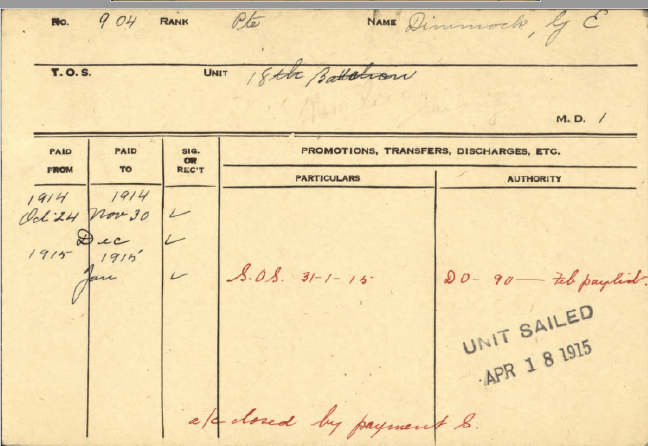 No. 904 RANK Pte NAME Dimmock, G E
T.O.S. UNIT 18th Battalion
M.D. 1
PAID FROM PAID TO SIG. OR REC'T PROMOTIONS, TRANSFERS, DISCHARGES, ETC.
PARTICULARS AUTHORITY
1914 1914
Oct 24 Nov 30 ✓
Dec ✓
1915 1915
Jan ✓ S.O.S. 31-1-15 DO- 90 — Feb paylist.
UNIT SAILED
APR 18 1915
a/c closed by payment S.